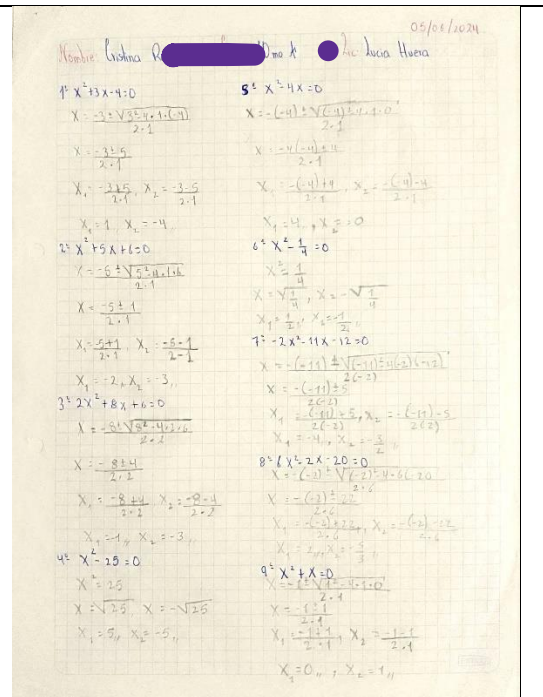 05/06/2024
Nombre: Cristina
Lic Lucia Huera
1º x²+3x-4=0
x = -3±√3²-4·1·(-4) / 2·1
x = -3±5 / 2·1
x₁ = -3+5 / 2·1, x₂ = -3-5 / 2·1
x₁=1, x₂=-4,,
2º x²+5x+6=0
x = -5±√5²-4·1·6 / 2·1
x = -5±1 / 2·1
x₁ = -5+1 / 2·1, x₂ = -5-1 / 2-1
x₁=-2,, x₂=-3,,
3º 2x²+8x+6=0
x = -8±√8²-4·2·6 / 2·2
x = -8±4 / 2·2
x₁ = -8+4 / 2·2 x₂ = -8-4 / 2·2
x₁=-1,, x₂=-3,,
4º x²-25=0
x²=25
x=√25 x=-√25
x₁=5,, x₂=-5,,
5º x²-4x=0
x = -(-4)±√(-4)²-4·1·0 / 2·1
x = -4(-4)±4 / 2·1
x₁ = -(-4)+4 / 2·1, x₂ = -(-4)-4 / 2·1
x₁=4,, x₂=0
6º x²-1/4=0
x²=1/4
x=√1/4, x=-√1/4
x₁=1/2, x₂=-1/2,,
7º -2x²-11x-12=0
x = -(-11)±√(-11)²-4(-2)(-12) / 2(-2)
x = -(-11)±5 / 2(-2)
x₁ = -(-11)+5 / 2(-2), x₂ = -(-11)-5 / 2(2)
x₁=-4,, x₂=-3/2,,
8º 6x²-2x-20=0
x = -(-2)±√(-2)²-4·6(-20 / 2·6
x = -(-2)±22 / 2·6
x₁ = -(-2)+22 / 2·6, x₂ = -(-2)-22 / 2·6
x₁=2,, x₂=-5/3,,
9º x²+x=0
x = -1±√1²-4·1·0 / 2·1
x = -1±1 / 2·1
x₁ = -1+1 / 2·1, x₂ = -1-1 / 2·1
x₁=0,,, x₂=1,,